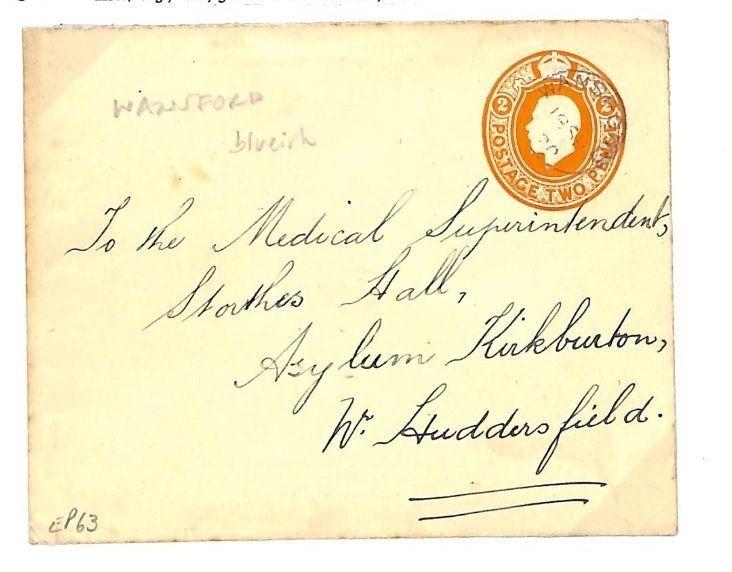 WANSFORD
blueish
2 2
POSTAGE TWO PENCE
WANSFO
To the Medical Superintendent,
Storthes Hall,
Asylum Kirkburton,
Nr. Huddersfield.
EP63